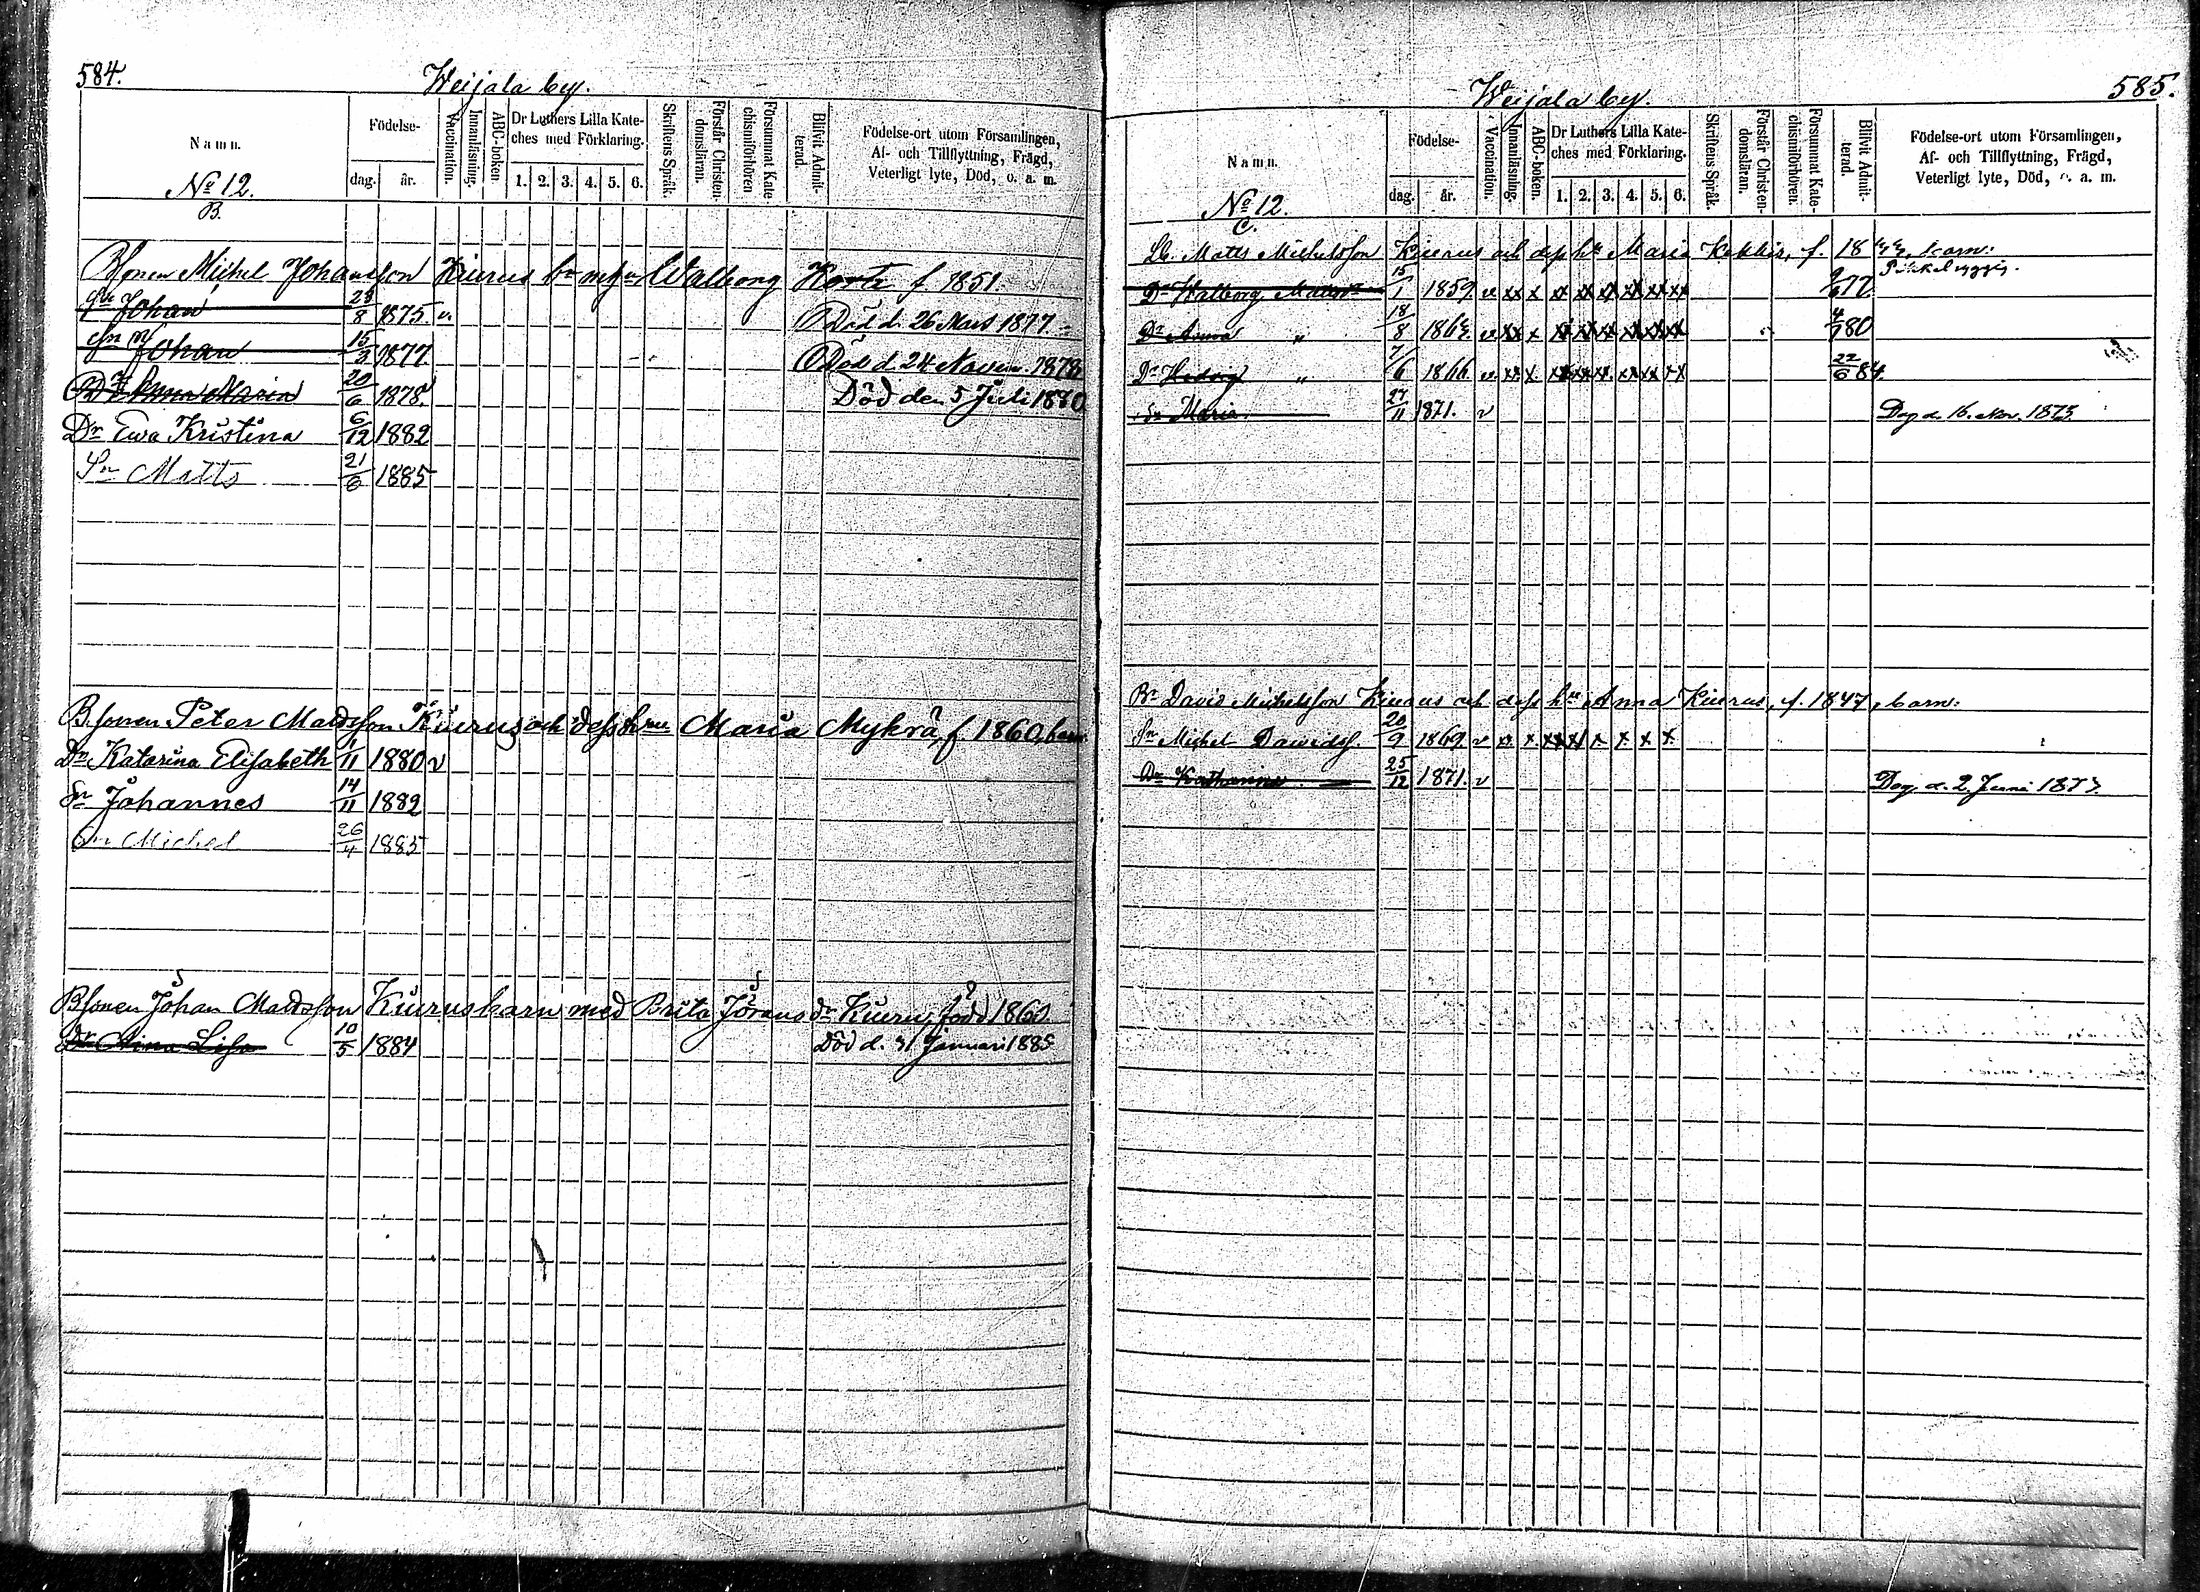 584.
Weijala by.
Namn.
Födelse-
dag.
år.
Vaccination.
Innanläsning.
ABC-boken.
Dr Luthers Lilla Kate-
ches med Förklaring.
1. 2. 3. 4. 5. 6.
Skriftens Språk.
Förstår Christen-
domsläran.
Försummat Kate-
chismiförhören
Blifvit Admit-
terad.
Födelse-ort utom Församlingen,
Af- och Tillflyttning, Frägd,
Veterligt lyte, Död, o. a. m.
No 12.
B.
Bsonen Michel Johansson Kiurus Walborg f 1851.
Johan 23/8 1875. v. Död d. 26 Mars 1877
Sn Johan 15/3 1877. Död d. 24 Novem. 1878
Dr Anna Maria 20/6 1878. Död den 5 Juli 1880
Dr Ewa Kristina 6/12 1882
Sn Matts 21/6 1885
Bsonen Peter Mattsson Kiurus och dess hru Maria Mykrä, f 1860, barn
Dr Katarina Elisabeth 1/11 1880 v
Sn Johannes 14/11 1882
Sn Michel 26/4 1885
Bsonen Johan Mattsson Kiurus barn med Brita Jörans dr Kiuru född 1860.
Dr Anna Lisa 10/5 1884 Död d. 31 Januari 1885
585.
Weijala by.
Namn.
Födelse-
dag.
år.
Vaccination.
Innanläsning.
ABC-boken.
Dr Luthers Lilla Kate-
ches med Förklaring.
1. 2. 3. 4. 5. 6.
Skriftens Språk.
Förstår Christen-
domsläran.
Försummat Kate-
chismiförhören.
Blifvit Admit-
terad.
Födelse-ort utom Församlingen,
Af- och Tillflyttning, Frägd,
Veterligt lyte, Död, o. a. m.
No 12.
C.
Matts Michelsson Kiurus och dess hu Maria Kekkis, f. 18 barn:
Dr Walborg Mattsdr 15/1 1859. v xx x x xx x xx xx xx 77.
Dr Anna " 18/8 186 v xx x xx xx xx xx xx xx 4/7 80
Dr Hedvig " 7/6 1866. v. xx x. xx xx xx. xx xx xx 22/6 84.
Dr Maria. 27/11 1871. v Dog d. 16. Nov. 1873.
Br David Michelsson Kiurus och dess hu Anna Kiurus, f. 1847, barn:
Sn Michel Davidss. 20/9 1869. v x. x xx xx x x x x.
Dr Katharina 25/12 1871. v Dog d. 2. Juni 1877.